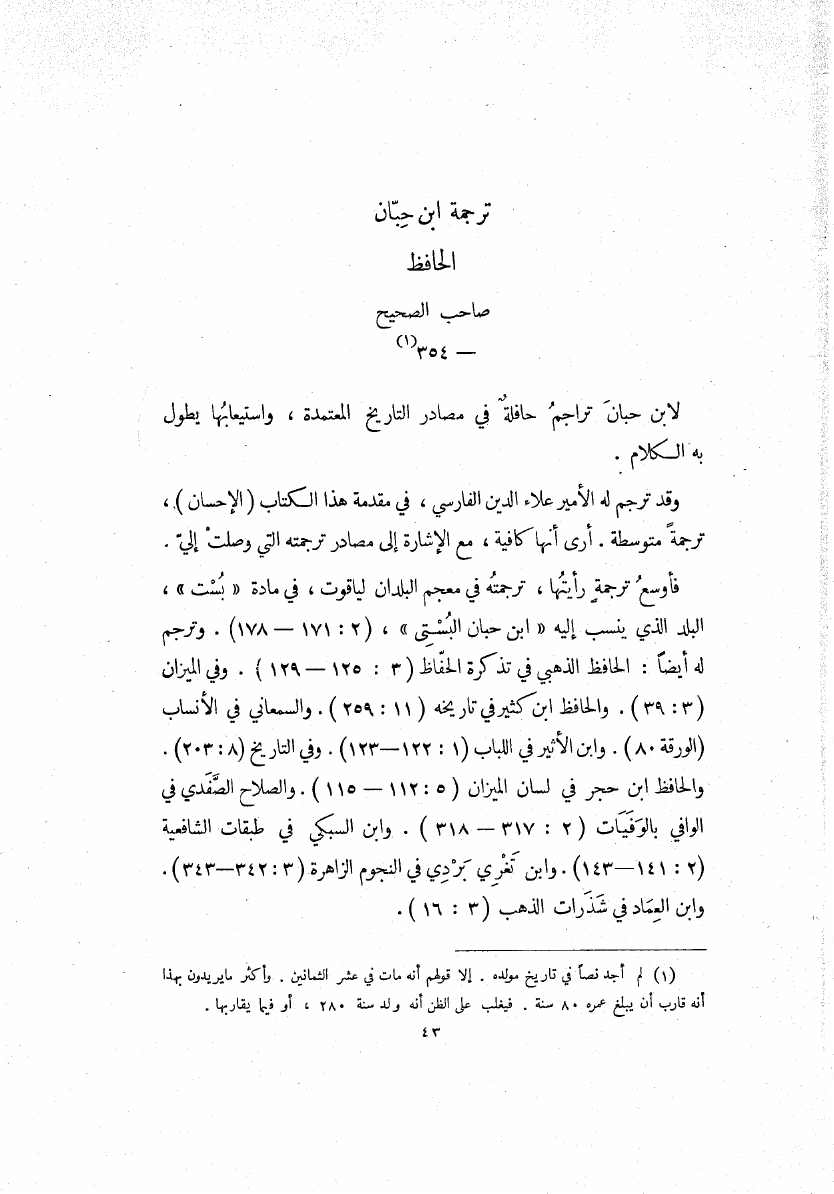 ترجمة ابن حِبّان
الحافظ
صاحب الصحيح
— ٣٥٤(١)
لابن حبانَ تراجمُ حافلةٌ في مصادر التاريخ المعتمدة ، واستيعابُها يطول
به الكلام .
وقد ترجم له الأمير علاء الدين الفارسي ، في مقدمة هذا الكتاب ( الإحسان ) ،
ترجمةً متوسطة . أرى أنها كافية ، مع الإشارة إلى مصادر ترجمته التي وصلتْ إليّ .
فأوسعُ ترجمةٍ رأيتُها ، ترجمتُه في معجم البلدان لياقوت ، في مادة « بُسْت » ،
البلد الذي ينسب إليه « ابن حبان البُسْتِي » ، ( ٢ : ١٧١ — ١٧٨ ) . وترجم
له أيضاً : الحافظ الذهبي في تذكرة الحفّاظ ( ٣ : ١٢٥ — ١٢٩ ) . وفي الميزان
( ٣ : ٣٩ ) . والحافظ ابن كثير في تاريخه ( ١١ : ٢٥٩ ) . والسمعاني في الأنساب
(الورقة ٨٠) . وابن الأثير في اللباب ( ١ : ١٢٢—١٢٣ ) . وفي التاريخ ( ٨ : ٢٠٣ ) .
والحافظ ابن حجر في لسان الميزان ( ٥ : ١١٢ — ١١٥ ) . والصلاح الصَّفَدي في
الوافي بالوَفَيَات ( ٢ : ٣١٧ — ٣١٨ ) . وابن السبكي في طبقات الشافعية
( ٢ : ١٤١—١٤٣ ) . وابن تَغْرِي بَرْدِي في النجوم الزاهرة ( ٣ : ٣٤٢—٣٤٣ ) .
وابن العِمَاد في شَذَرات الذهب ( ٣ : ١٦ ) .
(١) لم أجد نصاً في تاريخ مولده . إلا قولهم أنه مات في عشر الثمانين . وأكثر مايريدون بهذا
أنه قارب أن يبلغ عمره ٨٠ سنة . فيغلب على الظن أنه ولد سنة ٢٨٠ ، أو فيما يقاربها .
٤٣